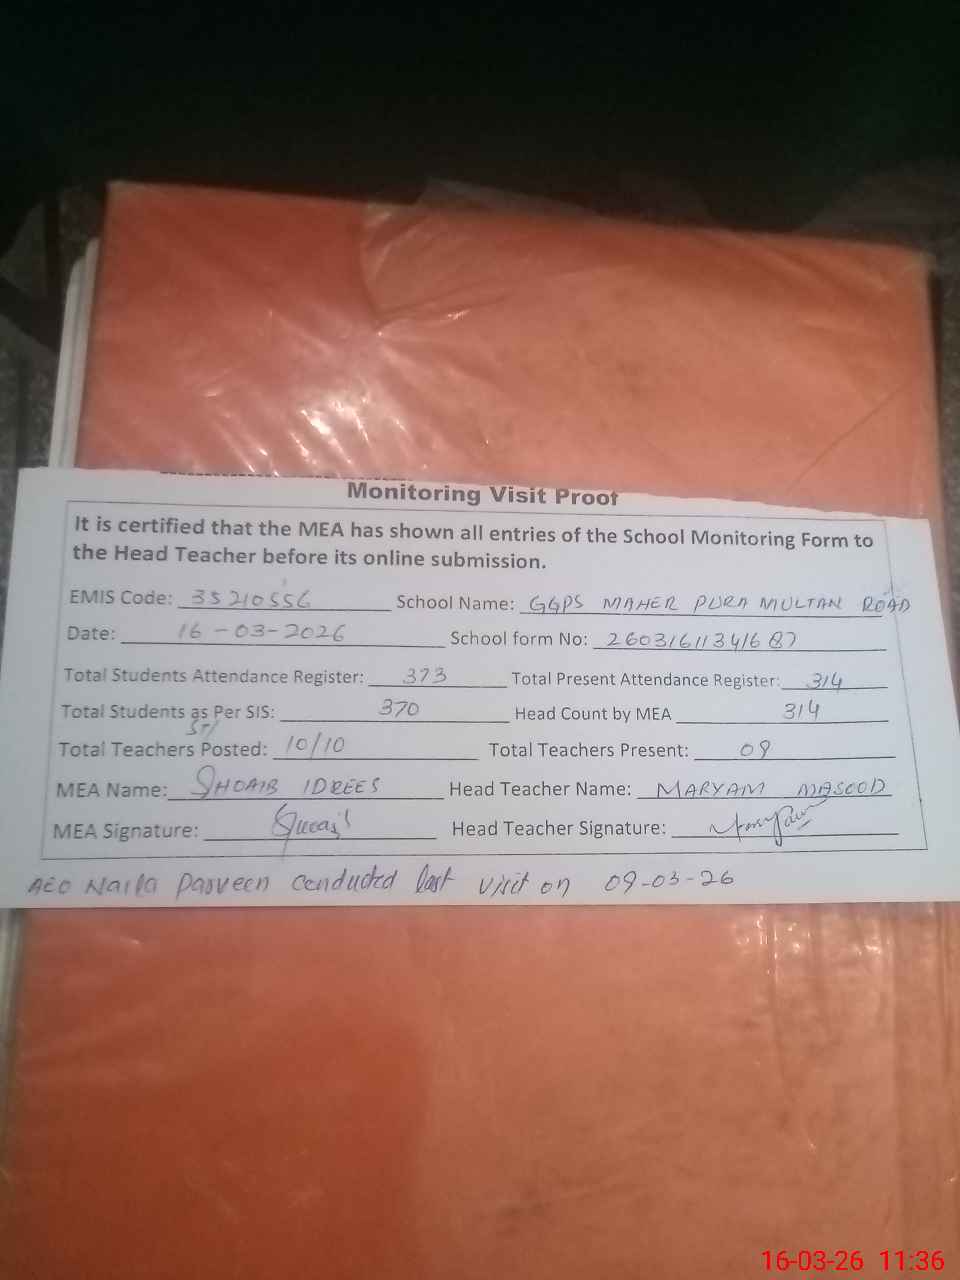 Monitoring Visit Proof
It is certified that the MEA has shown all entries of the School Monitoring Form to
the Head Teacher before its online submission.
EMIS Code: 35210556 School Name: GGPS MAHER PURA MULTAN ROAD
Date: 16-03-2026 School form No: 26031611341687
Total Students Attendance Register: 373 Total Present Attendance Register: 314
Total Students as Per SIS: 370 Head Count by MEA 314
Total Teachers Posted: 10/10 Total Teachers Present: 09
MEA Name: SHOAIB IDREES Head Teacher Name: MARYAM MASOOD
MEA Signature: Head Teacher Signature:
AEO Naila Parveen conducted last visit on 09-03-26
16-03-26 11:36